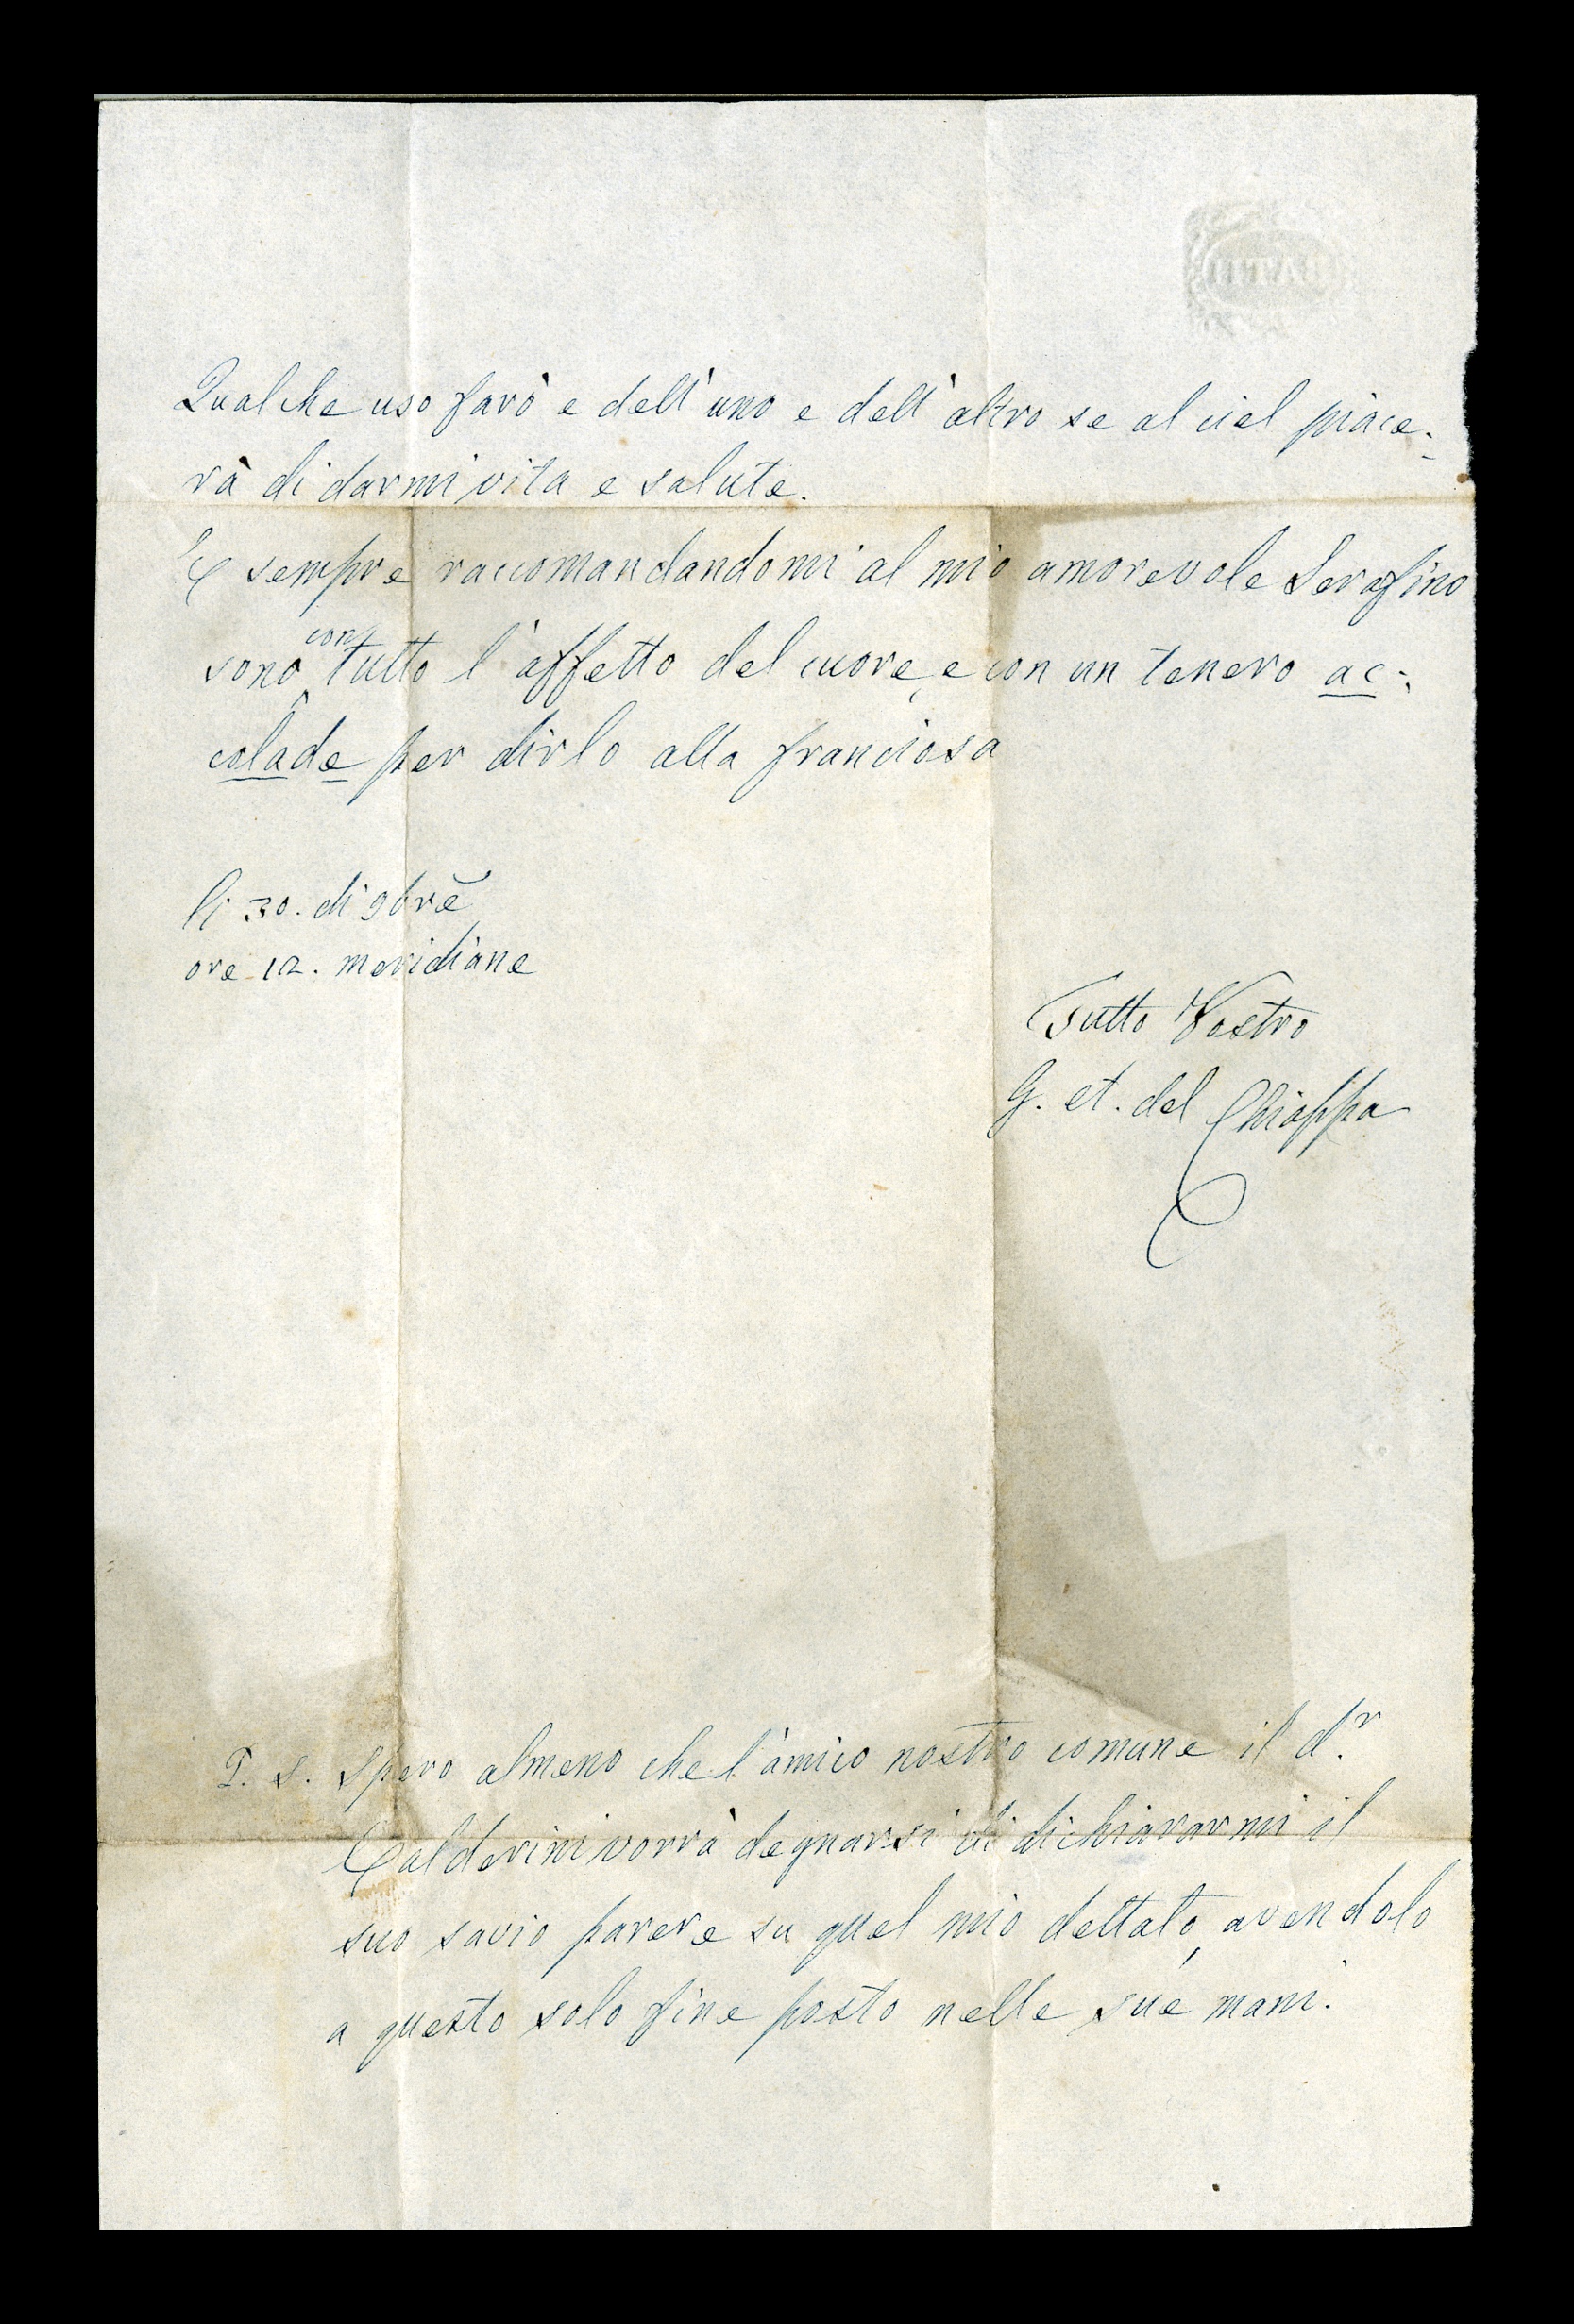 Qualche uso farò e dell'uno e dell'altro se al ciel piace-
rà di darmi vita e salute.
E sempre raccomandandomi al mio amorevole Serafino
sono con tutto l'affetto del cuore, e con un tenero ac-
colade per dirlo alla franciosa
li 30. di 9brē
ore 12. meridiane
Tutto Vostro
G. et. del Chiappa
P. s. Spero almeno che l'amico nostro comune il d.r
Calderini vorrà degnarsi di dichiararmi il
suo savio parere su quel mio dettato, avendolo
a questo solo fine posto nelle sue mani.